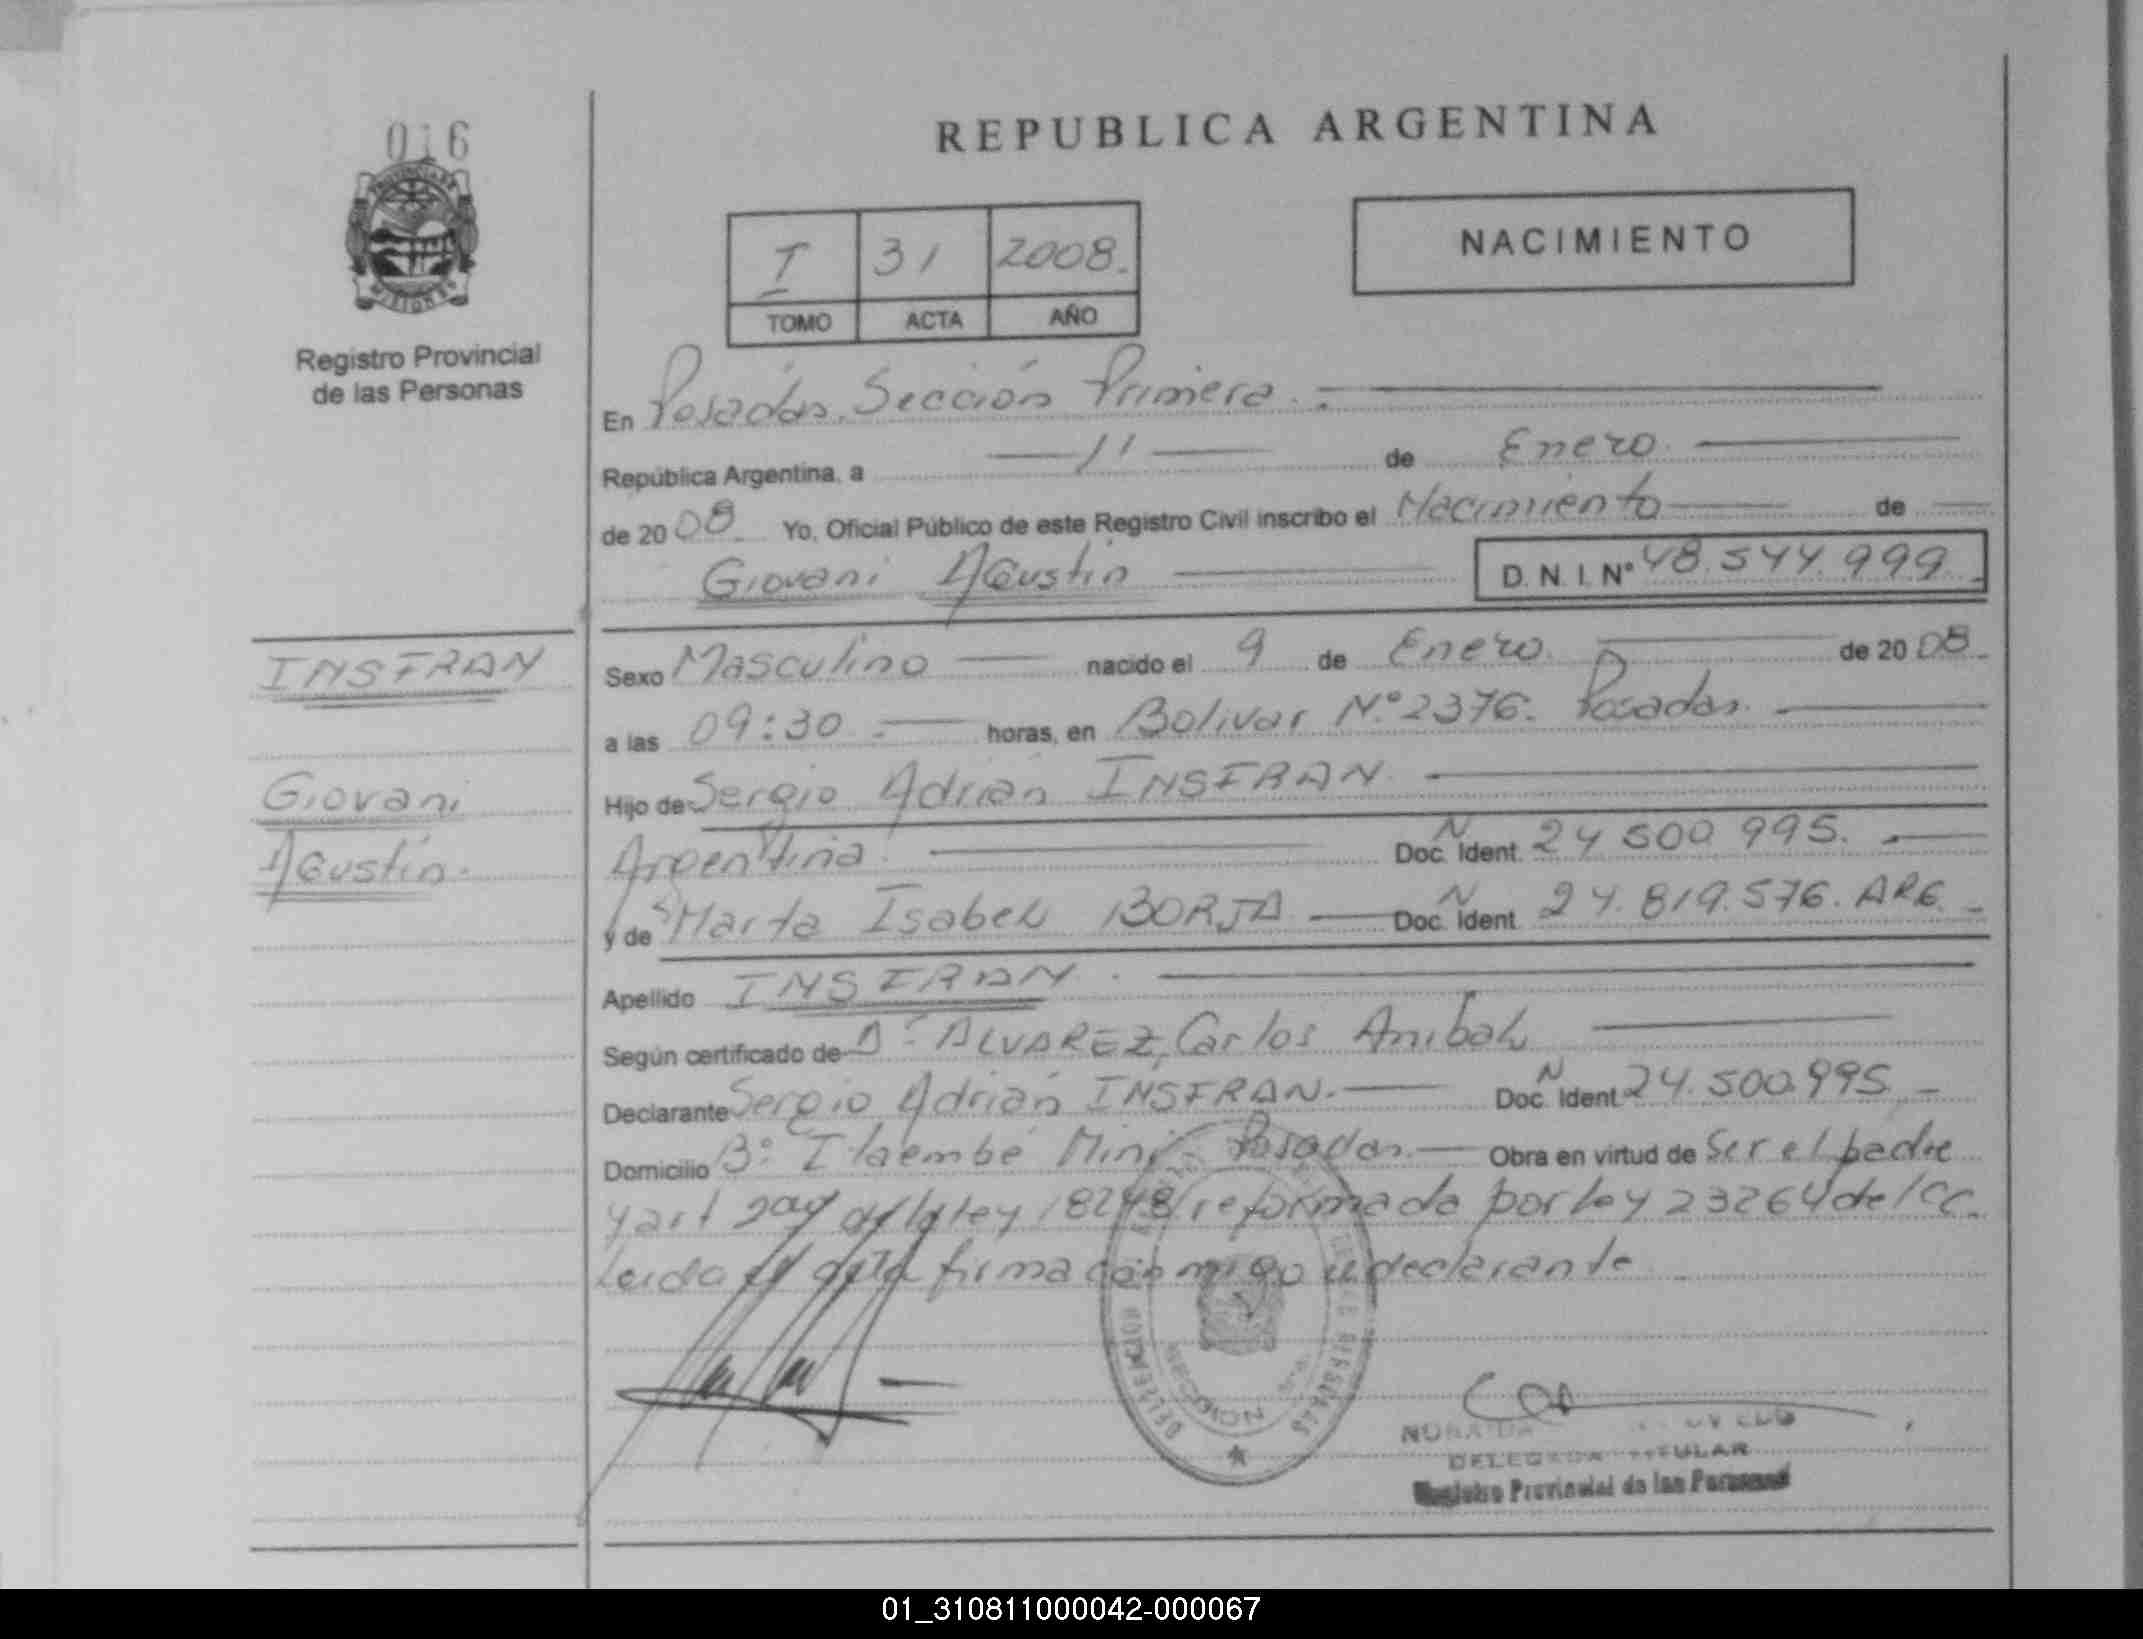 016
REPUBLICA ARGENTINA
PROVINCIA DE
MISIONES
Registro Provincial
de las Personas
I 31 2008.
TOMO ACTA AÑO
NACIMIENTO
En Posadas, Sección Primera.
República Argentina, a 11 de Enero
de 2008. Yo, Oficial Público de este Registro Civil inscribo el Nacimiento de
Giovani Agustín D. N. I. N° 48.544.999
INSFRAN
Giovani
Agustín.
Sexo Masculino nacido el 9 de Enero de 2008.
a las 09:30 horas, en Bolivar N.° 2376. Posadas.
Hijo de Sergio Adrián INSFRAN
Argentina. Doc. Ident. N 24 500 995.
y de Marta Isabel BORJA Doc. Ident. N 24.819.576. ARG.
Apellido INSFRAN.
Según certificado de Dr ALVAREZ, Carlos Anibal
Declarante Sergio Adrián INSFRAN. Doc. Ident N 24.500.995
Domicilio B° Itaembé Miní Posadas. Obra en virtud de Ser el padre
y art de la ley 18248 reformada por ley 23264 del CC.
Leida el acta firma con migo el declarante
DELEGADA TITULAR
Registro Provincial de las Personas
01_310811000042-000067